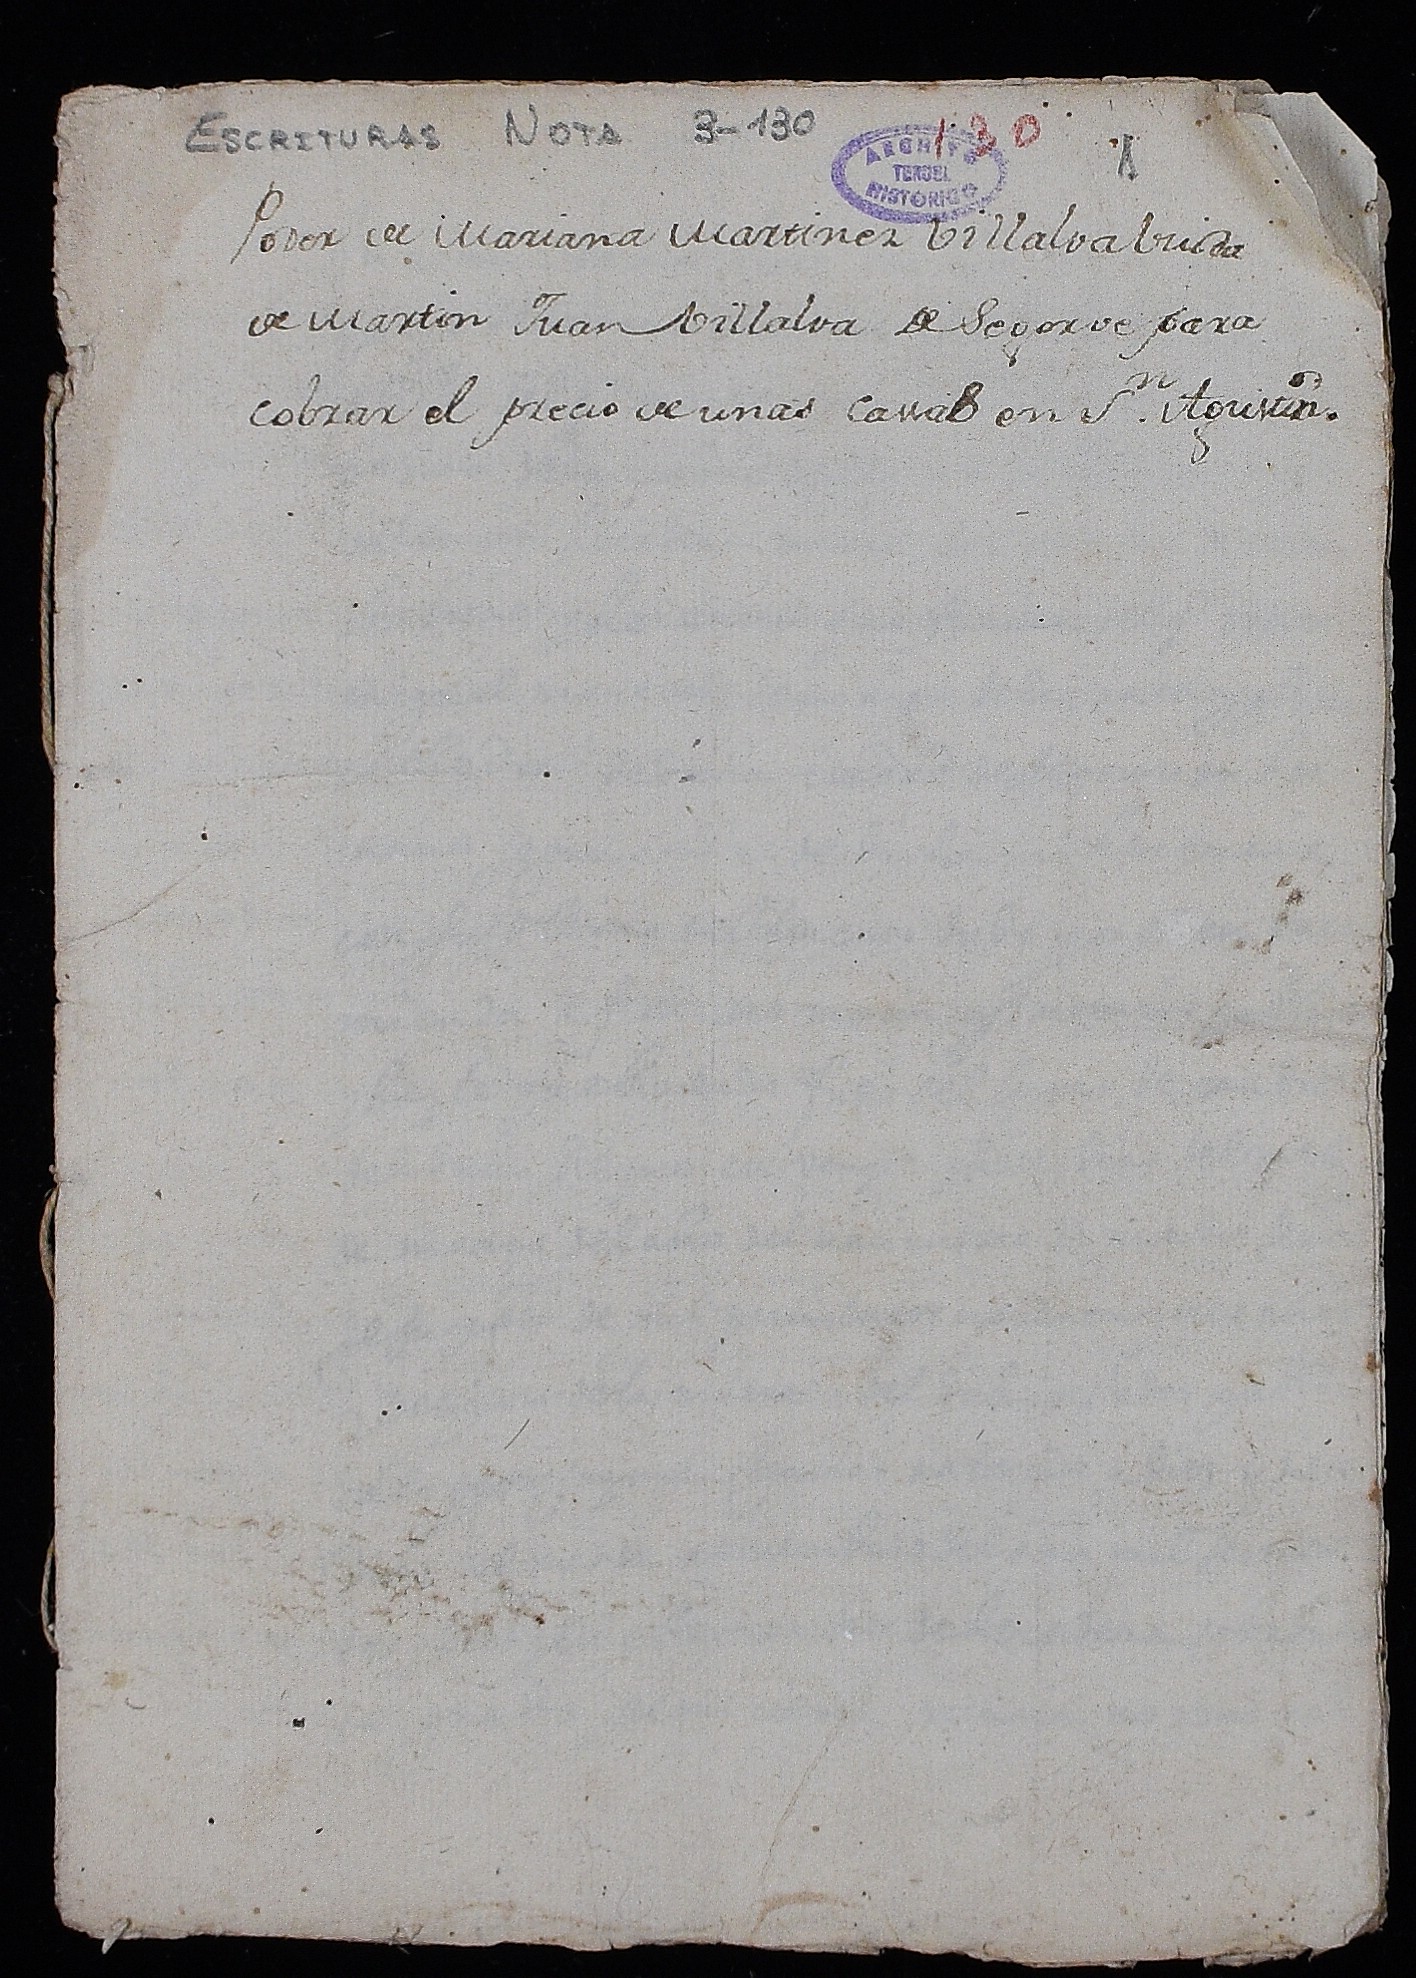 ESCRITURAS NOTA 3-130
130
1
ARCHIVO
TERUEL
HISTORICO
Poder de Mariana Martinez Villalva Viuda
de Martin Juan Villalva de Segorve para
cobrar el precio de unas cassas en Sn. Agustin.